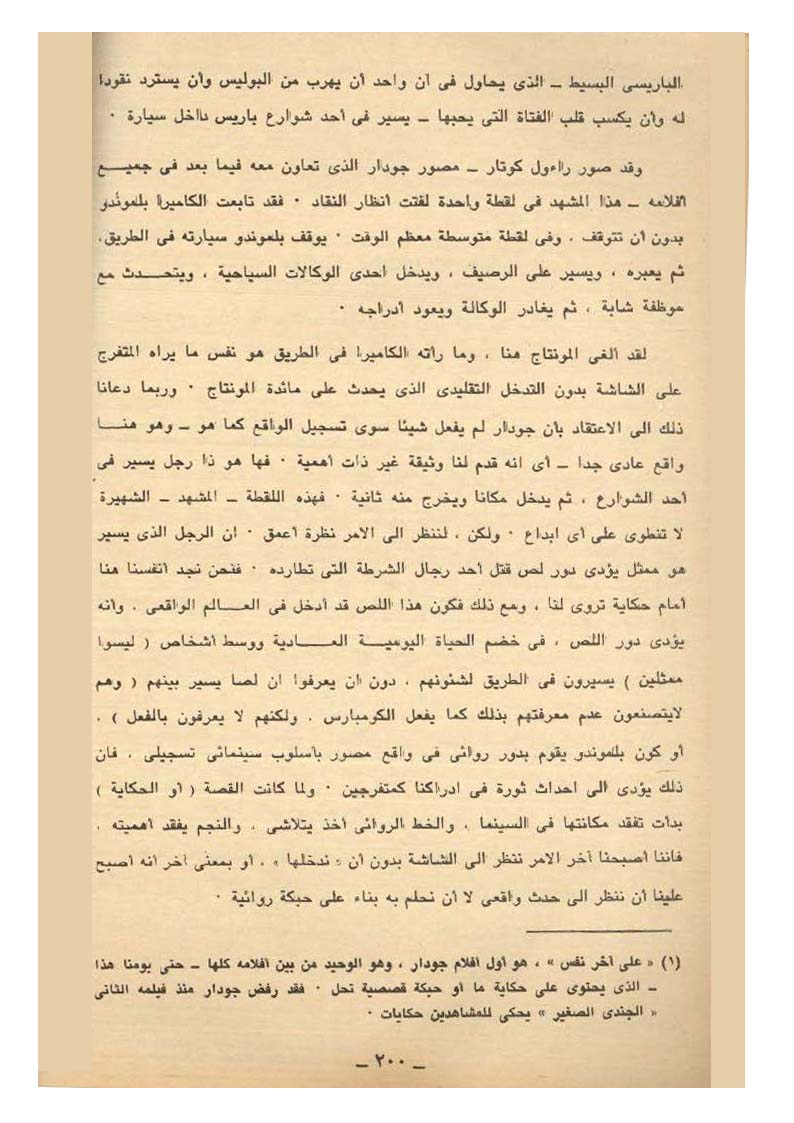 الباريسى البسيط ــ الذى يحاول فى آن واحد أن يهرب من البوليس وأن يسترد نقودا
له وأن يكسب قلب الفتاة التى يحبها ــ يسير فى أحد شوارع باريس داخل سيارة ٠
وقد صور راءول كوتار ــ مصور جودار الذى تعاون معه فيما بعد فى جميــع
أفلامه ــ هذا المشهد فى لقطة واحدة لفتت أنظار النقاد ٠ فقد تابعت الكاميرا بلموندو
بدون أن تتوقف ، وفى لقطة متوسطة معظم الوقت ٠ يوقف بلموندو سيارته فى الطريق،
ثم يعبره ، ويسير على الرصيف ، ويدخل احدى الوكالات السياحية ، ويتحــدث مع
موظفة شابة ، ثم يغادر الوكالة ويعود أدراجه ٠
لقد ألغى المونتاج هنا ، وما رأته الكاميرا فى الطريق هو نفس ما يراه المتفرج
على الشاشة بدون التدخل التقليدى الذى يحدث على مائدة المونتاج ٠ وربما دعانا
ذلك الى الاعتقاد بأن جودار لم يفعل شيئا سوى تسجيل الواقع كما هو ــ وهو هنــا
واقع عادى جدا ــ أى انه قدم لنا وثيقة غير ذات أهمية ٠ فها هو ذا رجل يسير فى
أحد الشوارع ، ثم يدخل مكانا ويخرج منه ثانية ٠ فهذه اللقطة ــ المشهد ــ الشهيرة
لا تنطوى على أى ابداع ٠ ولكن ، لننظر الى الامر نظرة أعمق ٠ ان الرجل الذى يسير
هو ممثل يؤدى دور لص قتل أحد رجال الشرطة التى تطارده ٠ فنحن نجد أنفسنا هنا
أمام حكاية تروى لنا ، ومع ذلك فكون هذا اللص قد أدخل فى العــالم الواقعى ، وأنه
يؤدى دور اللص ، فى خضم الحياة اليوميــة العــادية ووسط أشخاص ( ليسوا
ممثلين ) يسيرون فى الطريق لشئونهم ، دون ان يعرفوا ان لصا يسير بينهم ( وهم
لايتصنعون عدم معرفتهم بذلك كما يفعل الكومبارس ، ولكنهم لا يعرفون بالفعل ) ،
أو كون بلموندو يقوم بدور روائى فى واقع مصور بأسلوب سينمائى تسجيلى ، فان
ذلك يؤدى الى احداث ثورة فى ادراكنا كمتفرجين ٠ ولما كانت القصة ( أو الحكاية )
بدأت تفقد مكانتها فى السينما ، والخط الروائى أخذ يتلاشى ، والنجم يفقد أهميته ،
فاننا أصبحنا آخر الامر ننظر الى الشاشة بدون أن « ندخلها » ، أو بمعنى آخر أنه أصبح
علينا أن ننظر الى حدث واقعى لا أن نحلم به بناء على حبكة روائية ٠
(١) « على آخر نفس » ، هو أول أفلام جودار ، وهو الوحيد من بين أفلامه كلها ــ حتى يومنا هذا
ــ الذى يحتوى على حكاية ما أو حبكة قصصية تحل ٠ فقد رفض جودار منذ فيلمه الثانى
« الجندى الصغير » يحكى للمشاهدين حكايات ٠
ــ ٢٠٠ ــ